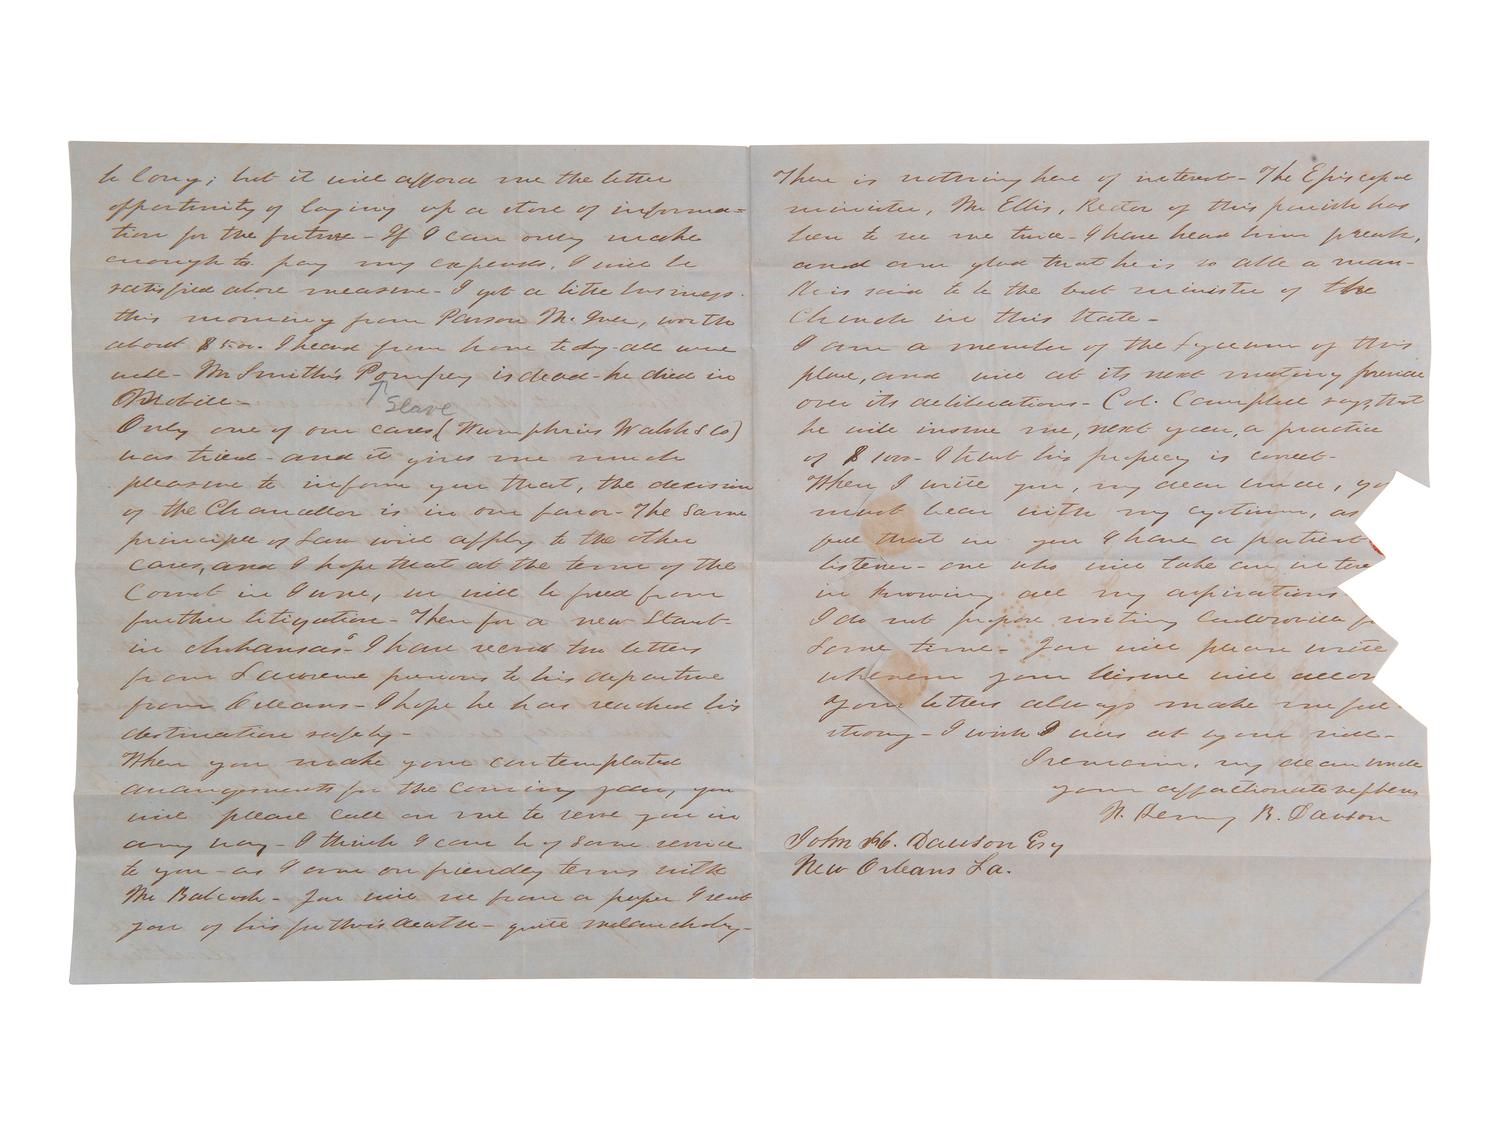 be long; but it will afford me the better
opportunity of laying up a store of informa=
tion for the future - If I can only make
enough to pay my expenses, I will be
satisfied above measure - I got a little business
this morning from Parson McIver, worth
about $500. I heard from home to day - all were
well - Mr Smith's Pompey is dead - he died in
Slave
Mobile -
Only one of our cases (Humphries Walsh & Co)
was tried - and it gives me much
pleasure to inform you that, the decision
of the Chancellor is in our favor - The same
principle of Law will apply to the other
cases, and I hope that at the term of the
Court in June, we will be freed from
further litigation - Then for a new Start
in Arkansas. I have recvd two letters
from Lawrence previous to his departure
from Orleans - I hope he has reached his
destination safely -
When you make your contemplated
arrangements for the coming year, you
will please call on me to serve you in
any way - I think I can be of some service
to you - as I am on friendly terms with
Mr Babcock - You will see from a paper I send
you of his father's death - quite melancholy -
There is nothing here of interest - The Episcopal
minister, Mr Ellis, Rector of this parish has
been to see me twice - I have heard him preach,
and am glad that he is so able a man -
He is said to be the best minister of the
Church in this State -
I am a member of the Lyceum of this
place, and will at its next meeting preside
over its deliberations - Col. Campbell says that
he will insure me, next year, a practice
of $1000 - I trust his prophecy is correct -
When I write you, my dear uncle, yo
must bear with my egotism, as
feel that in you I have a patient
listener - one who will take an inter
in knowing all my aspirations
I do not propose visiting f
some time - You will please write
whenever your leisure will allow
Your letters always make me feel
strong - I wish I was at your side -
I remain, my dear uncle
your affectionate nephew
N. Henry R. Dawson
John H. Dawson Esq
New Orleans La.